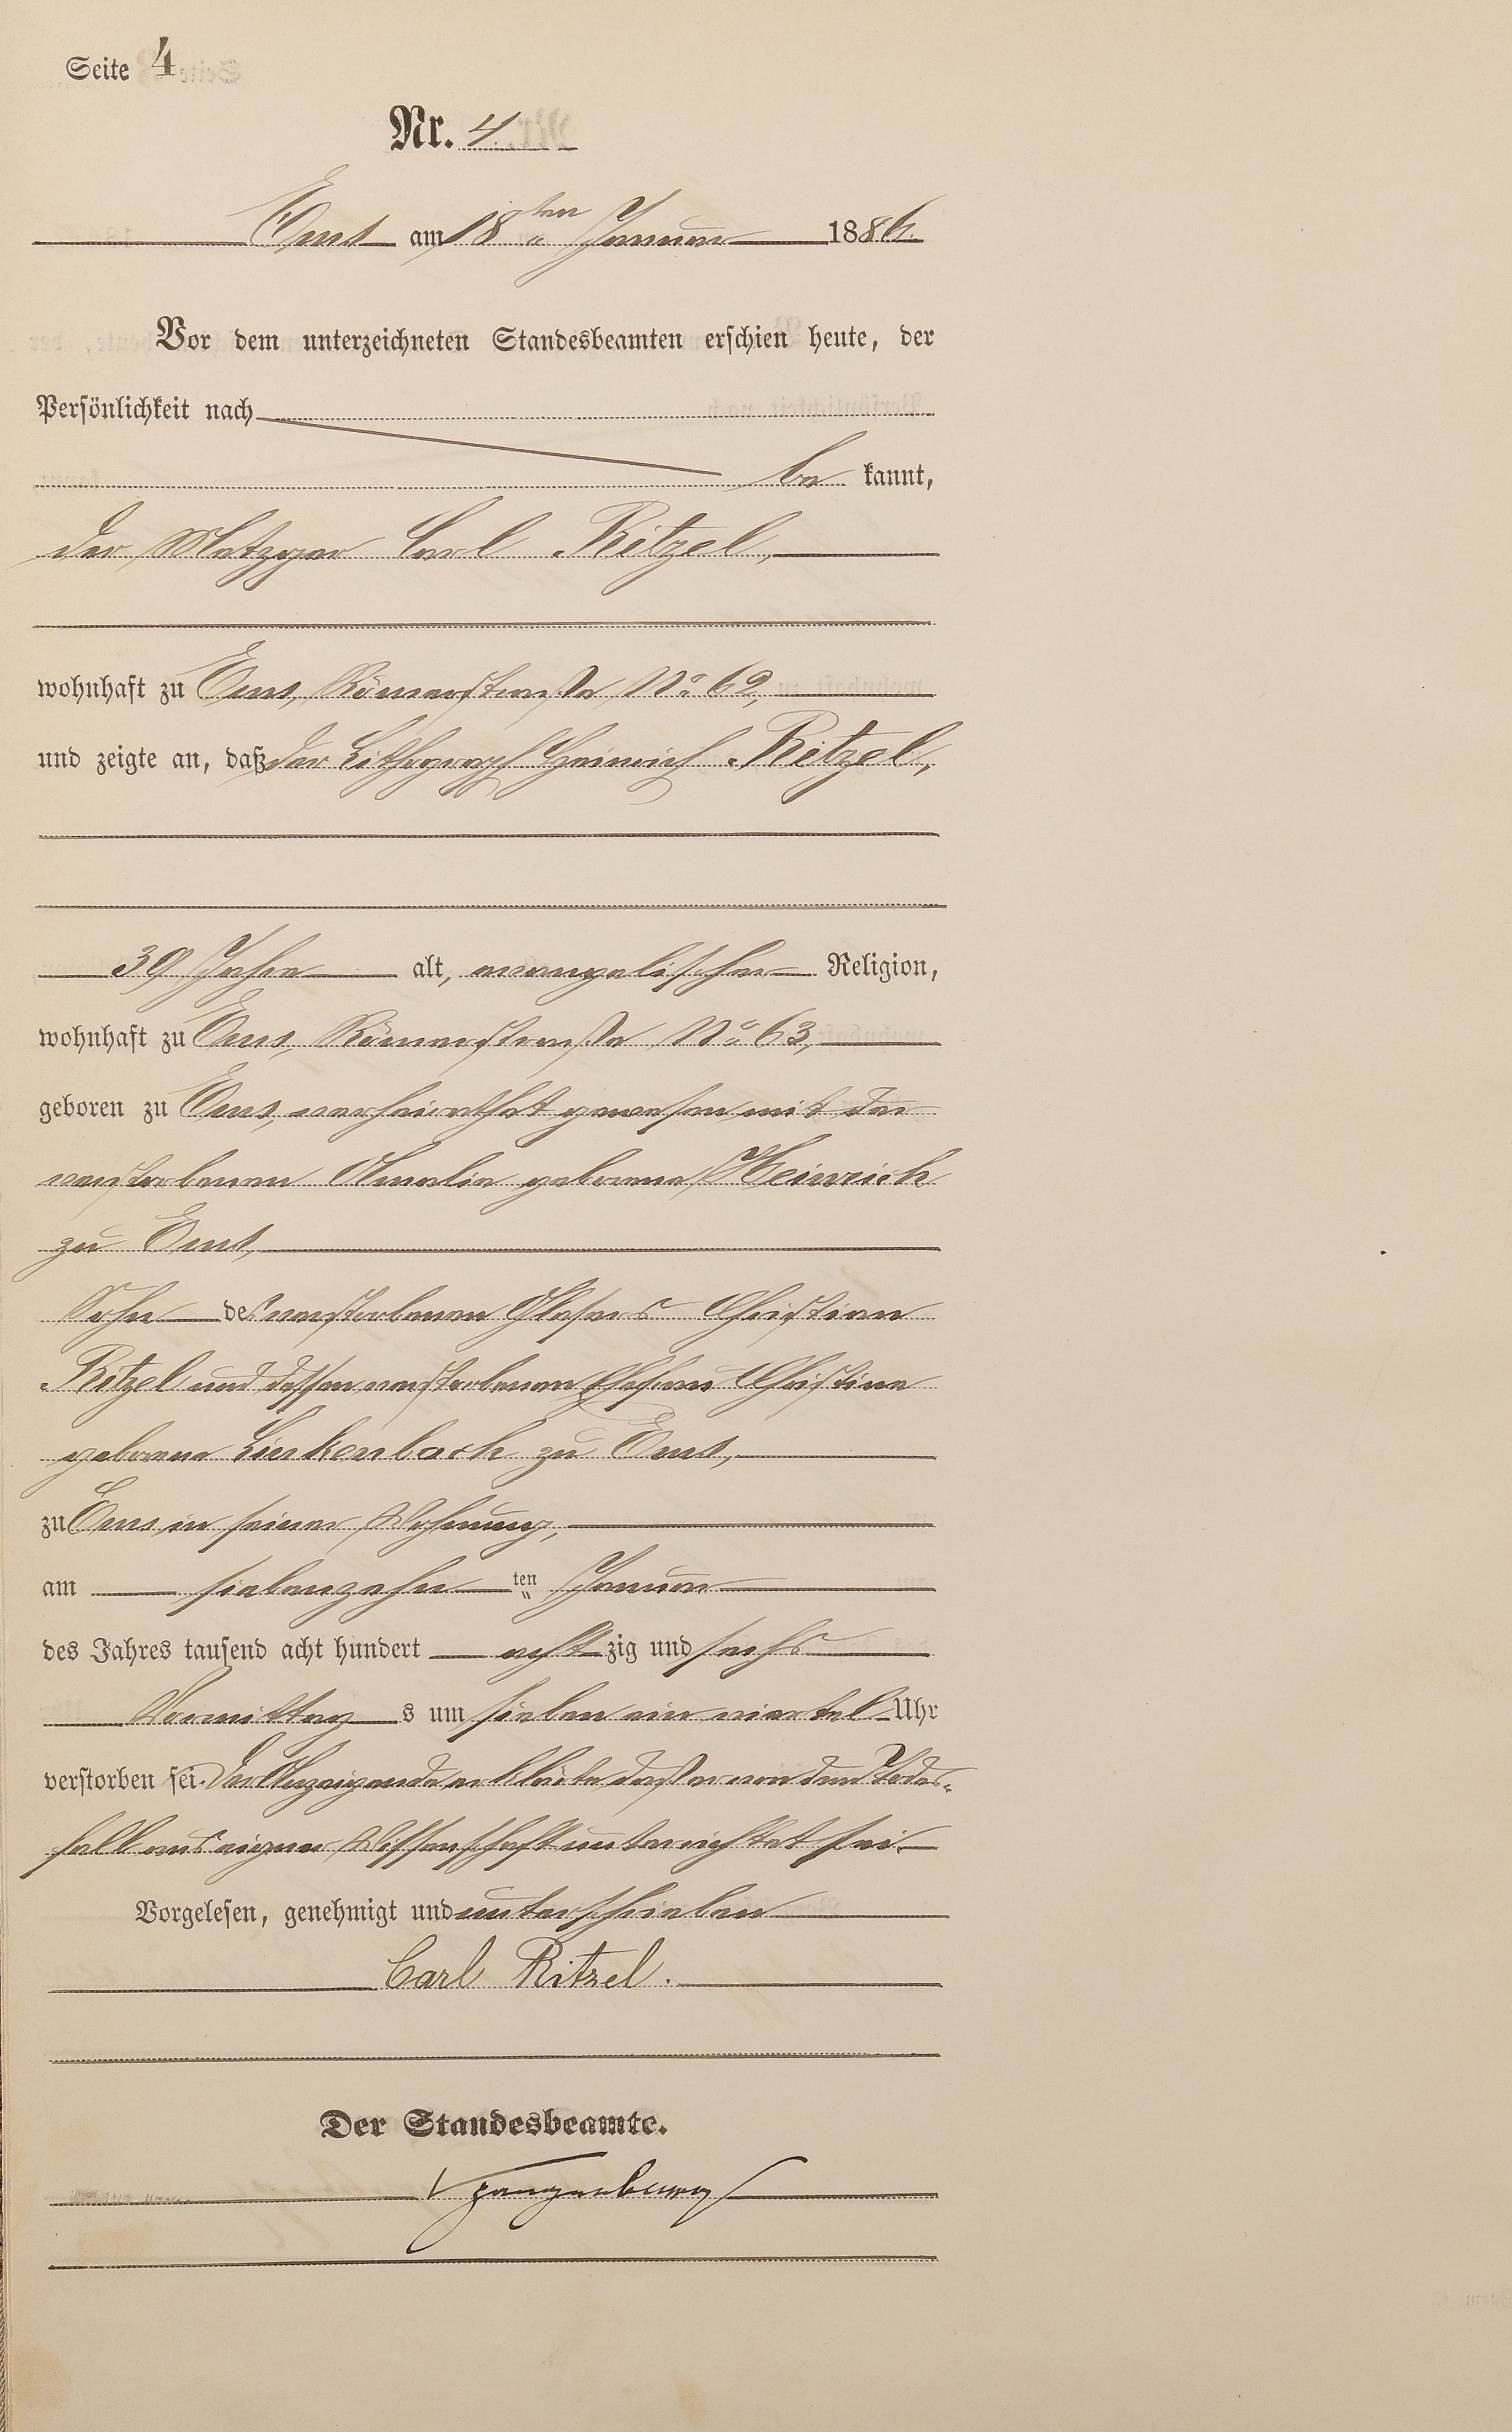 Seite 4
Nr. 4.
Ems am 18ten Januar 1886.
Vor dem unterzeichneten Standesbeamten erschien heute, der
Persönlichkeit nach
be kannt,
der Metzger Carl Ritzel,
wohnhaft zu Ems, Römerstraße No. 62,
und zeigte an, daß der Lithograph Heinrich Ritzel,
39 Jahre alt, evangelischer Religion,
wohnhaft zu Ems, Römerstraße No. 63,
geboren zu Ems, verheirathet gewesen mit der
verstorbenen Amalie geborene Heinrich
zu Ems,
Sohn des verstorbenen Glasers Christian
Ritzel und dessen verstorbenen Ehefrau Christine
geborene Linkenbach zu Ems,
zu Ems in seiner Wohnung,
am siebenzehn ten Januar
des Jahres tausend acht hundert acht zig und sechs
Vormittag s um sieben ein viertel Uhr
verstorben sei. Der Anzeigende erklärte daß er von dem Todes-
fall aus eigner Wissenschaft unterrichtet sei.
Vorgelesen, genehmigt und unterschrieben
Carl Ritzel.
Der Standesbeamte.